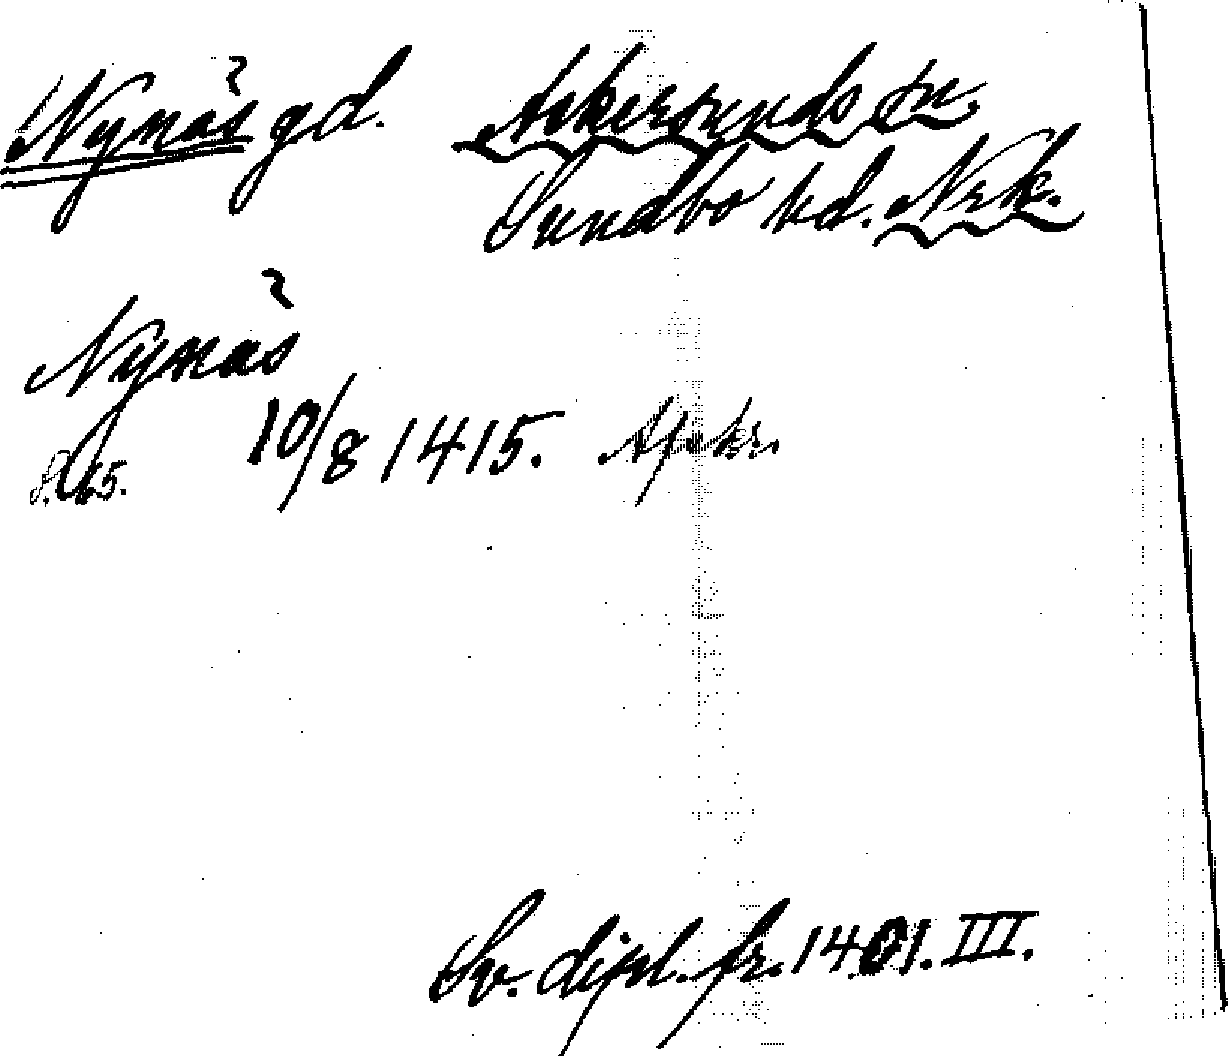 Nynäs gd. Askersunds sn.
Sundbo hd. Nrk.
Nynäs
s. 65. 10/8 1415. Afskr.
Sv. dipl. fr. 1401. III.